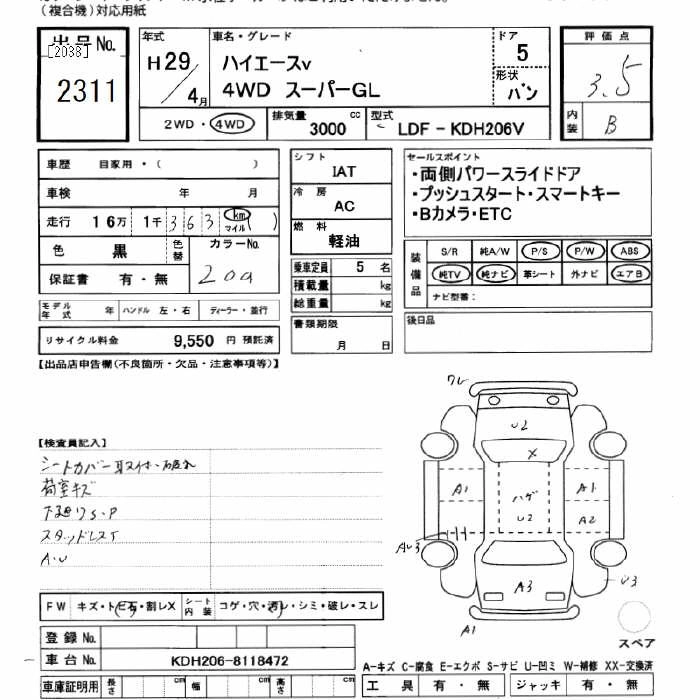 (複合機)対応用紙
出品No.
[2038]
2311
年式
H29
4月
車名・グレード
ハイエースv
4WD スーパーGL
ドア
5
形状
バン
評価点
3.5
内装
B
2WD・4WD
排気量
3000 cc
型式
LDF - KDH206V
車歴 自家用・( )
車検 年 月
走行 16万 1千 363 km マイル ( )
色 黒 色替 カラーNo.
209
保証書 有・無
モデル年式 年 ハンドル 左・右 ディーラー・並行
リサイクル料金 9,550 円 預託済
シフト
IAT
冷房
AC
燃料
軽油
乗車定員 5 名
積載量 kg
総重量 kg
書類期限
月 日
セールスポイント
・両側パワースライドドア
・プッシュスタート・スマートキー
・Bカメラ・ETC
装備品
S/R 純A/W P/S P/W ABS
純TV 純ナビ 革シート 外ナビ エアB
ナビ型番:
後日品
【出品店申告欄(不良箇所・欠品・注意事項等)】
【検査員記入】
シートカバー取付・破れ
荷室キズ
下廻りS・P
スタッドレス
A・U
ワレ
U2
X
A1
ハゲ
U2
A1
A2
AU3
A3
U3
A1
スペア
FW キズ・トビ石・割レX シート内装 コゲ・穴・汚レ・シミ・破レ・スレ
登録No.
車台No. KDH206-8118472
車庫証明用 長さ cm 幅 cm 高さ cm
A-キズ C-腐食 E-エクボ S-サビ U-凹ミ W-補修 XX-交換済
工具 有・無 ジャッキ 有・無